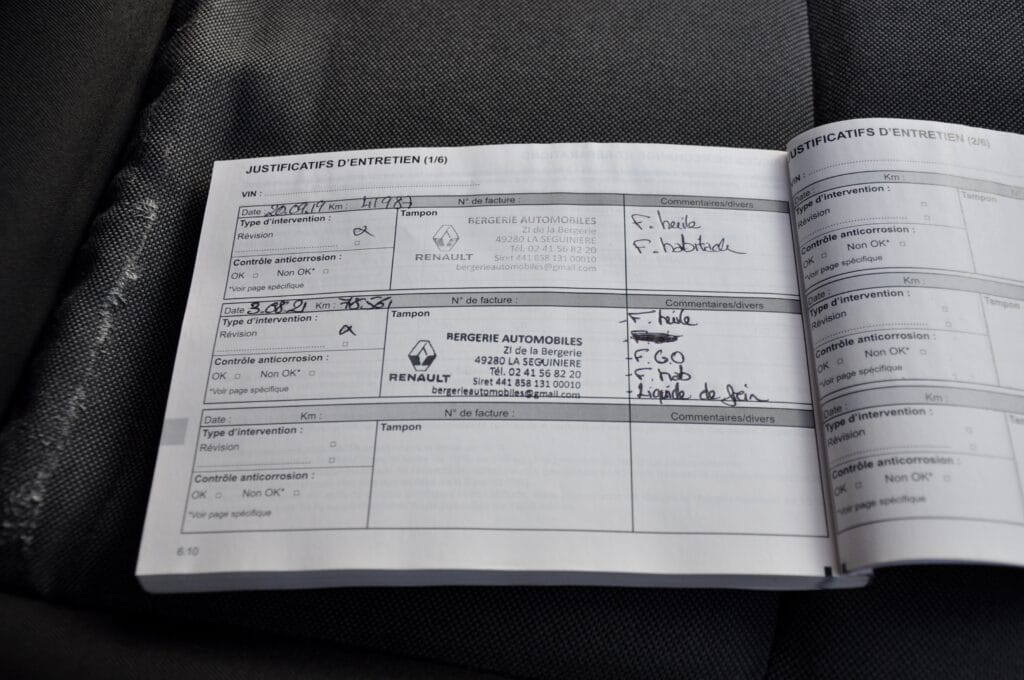 JUSTIFICATIFS D'ENTRETIEN (1/6)
VIN :
Date 20.09.19 Km : 41987 N° de facture : Commentaires/divers
Type d'intervention :
Révision
Contrôle anticorrosion :
OK Non OK*
*Voir page spécifique
Tampon
RENAULT
BERGERIE AUTOMOBILES
ZI de la Bergerie
49280 LA SEGUINIERE
Tél. 02 41 56 82 20
Siret 441 858 131 00010
bergerieautomobiles@gmail.com
F. heile
F. habitacle
Date 3.08.21 Km : N° de facture : Commentaires/divers
Type d'intervention :
Révision
Contrôle anticorrosion :
OK Non OK*
*Voir page spécifique
Tampon
RENAULT
BERGERIE AUTOMOBILES
ZI de la Bergerie
49280 LA SEGUINIERE
Tél. 02 41 56 82 20
Siret 441 858 131 00010
bergerieautomobiles@gmail.com
- F. heile
- F. GO
- F. hab
- Liquide de frein
Date : Km : N° de facture : Commentaires/divers
Type d'intervention :
Révision
Contrôle anticorrosion :
OK Non OK*
*Voir page spécifique
Tampon
6.10
JUSTIFICATIFS D'ENTRETIEN (2/6)
VIN :
Date : Km :
Type d'intervention :
Révision
Contrôle anticorrosion :
OK Non OK*
*Voir page spécifique
Tampon
Date : Km :
Type d'intervention :
Révision
Contrôle anticorrosion :
OK Non OK*
*Voir page spécifique
Tampon
Date : Km :
Type d'intervention :
Révision
Contrôle anticorrosion :
OK Non OK*
*Voir page spécifique
Tampon